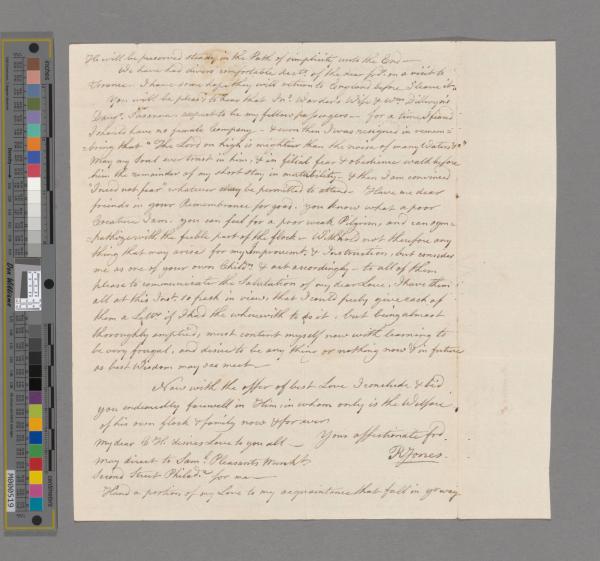 He will be preserved steady in the Path of simplicity unto the End —
We have had divers comfortable accts. of the dear frds. on a visit to
France. I have some hope they will return to England before I leave it.
You will be pleas'd to hear that Jno. Warder's Wife & Wm. Dillwyn's
Daugr. Susanna expect to be my fellow passengers — for a time I feared
I should have no female Company — & even then I was resigned in remem=
=bring that "The Lord on high is mightier than the noise of many Waters &c"
May my Soul ever trust in him, & in filial fear & obedience walk before
him the remainder of my short stay in mutability — & then I am convinced
"I need not fear" whatever may be permitted to attend. Have me dear
friends in your Remembrance for good. you know what a poor
Creature I am. you can feel for a poor weak Pilgrim, and can sym=
=pathize with the feeble part of the flock — Withhold not therefore any
thing that may arise for my Improvemt. & Instruction, but consider
me as one of your own Childn. & act accordingly — to all of them
please to communicate the Salutation of my dear love. I have them
all at this Inst. so fresh in view, that I could freely give each of
them a Lettr. if I had the wherewith to do it, but being almost
thoroughly emptied, must content myself now with learning to
be very frugal, and desire to be any thing or nothing now & in future
as best Wisdom may see meet —
Now with the offer of best Love I conclude & bid
you endearedly farewell in Him, in whom only is the Welfare
of his own flock & family now & for ever
My dear C H. desires Love to you all — Your affectionate frd.
may direct to Saml. Pleasants Mercht. R Jones.
Second Street Philada. for me —
Hand a portion of my Love to my acquaintance that fall in yr way
M000519
Don Williams
centimeters